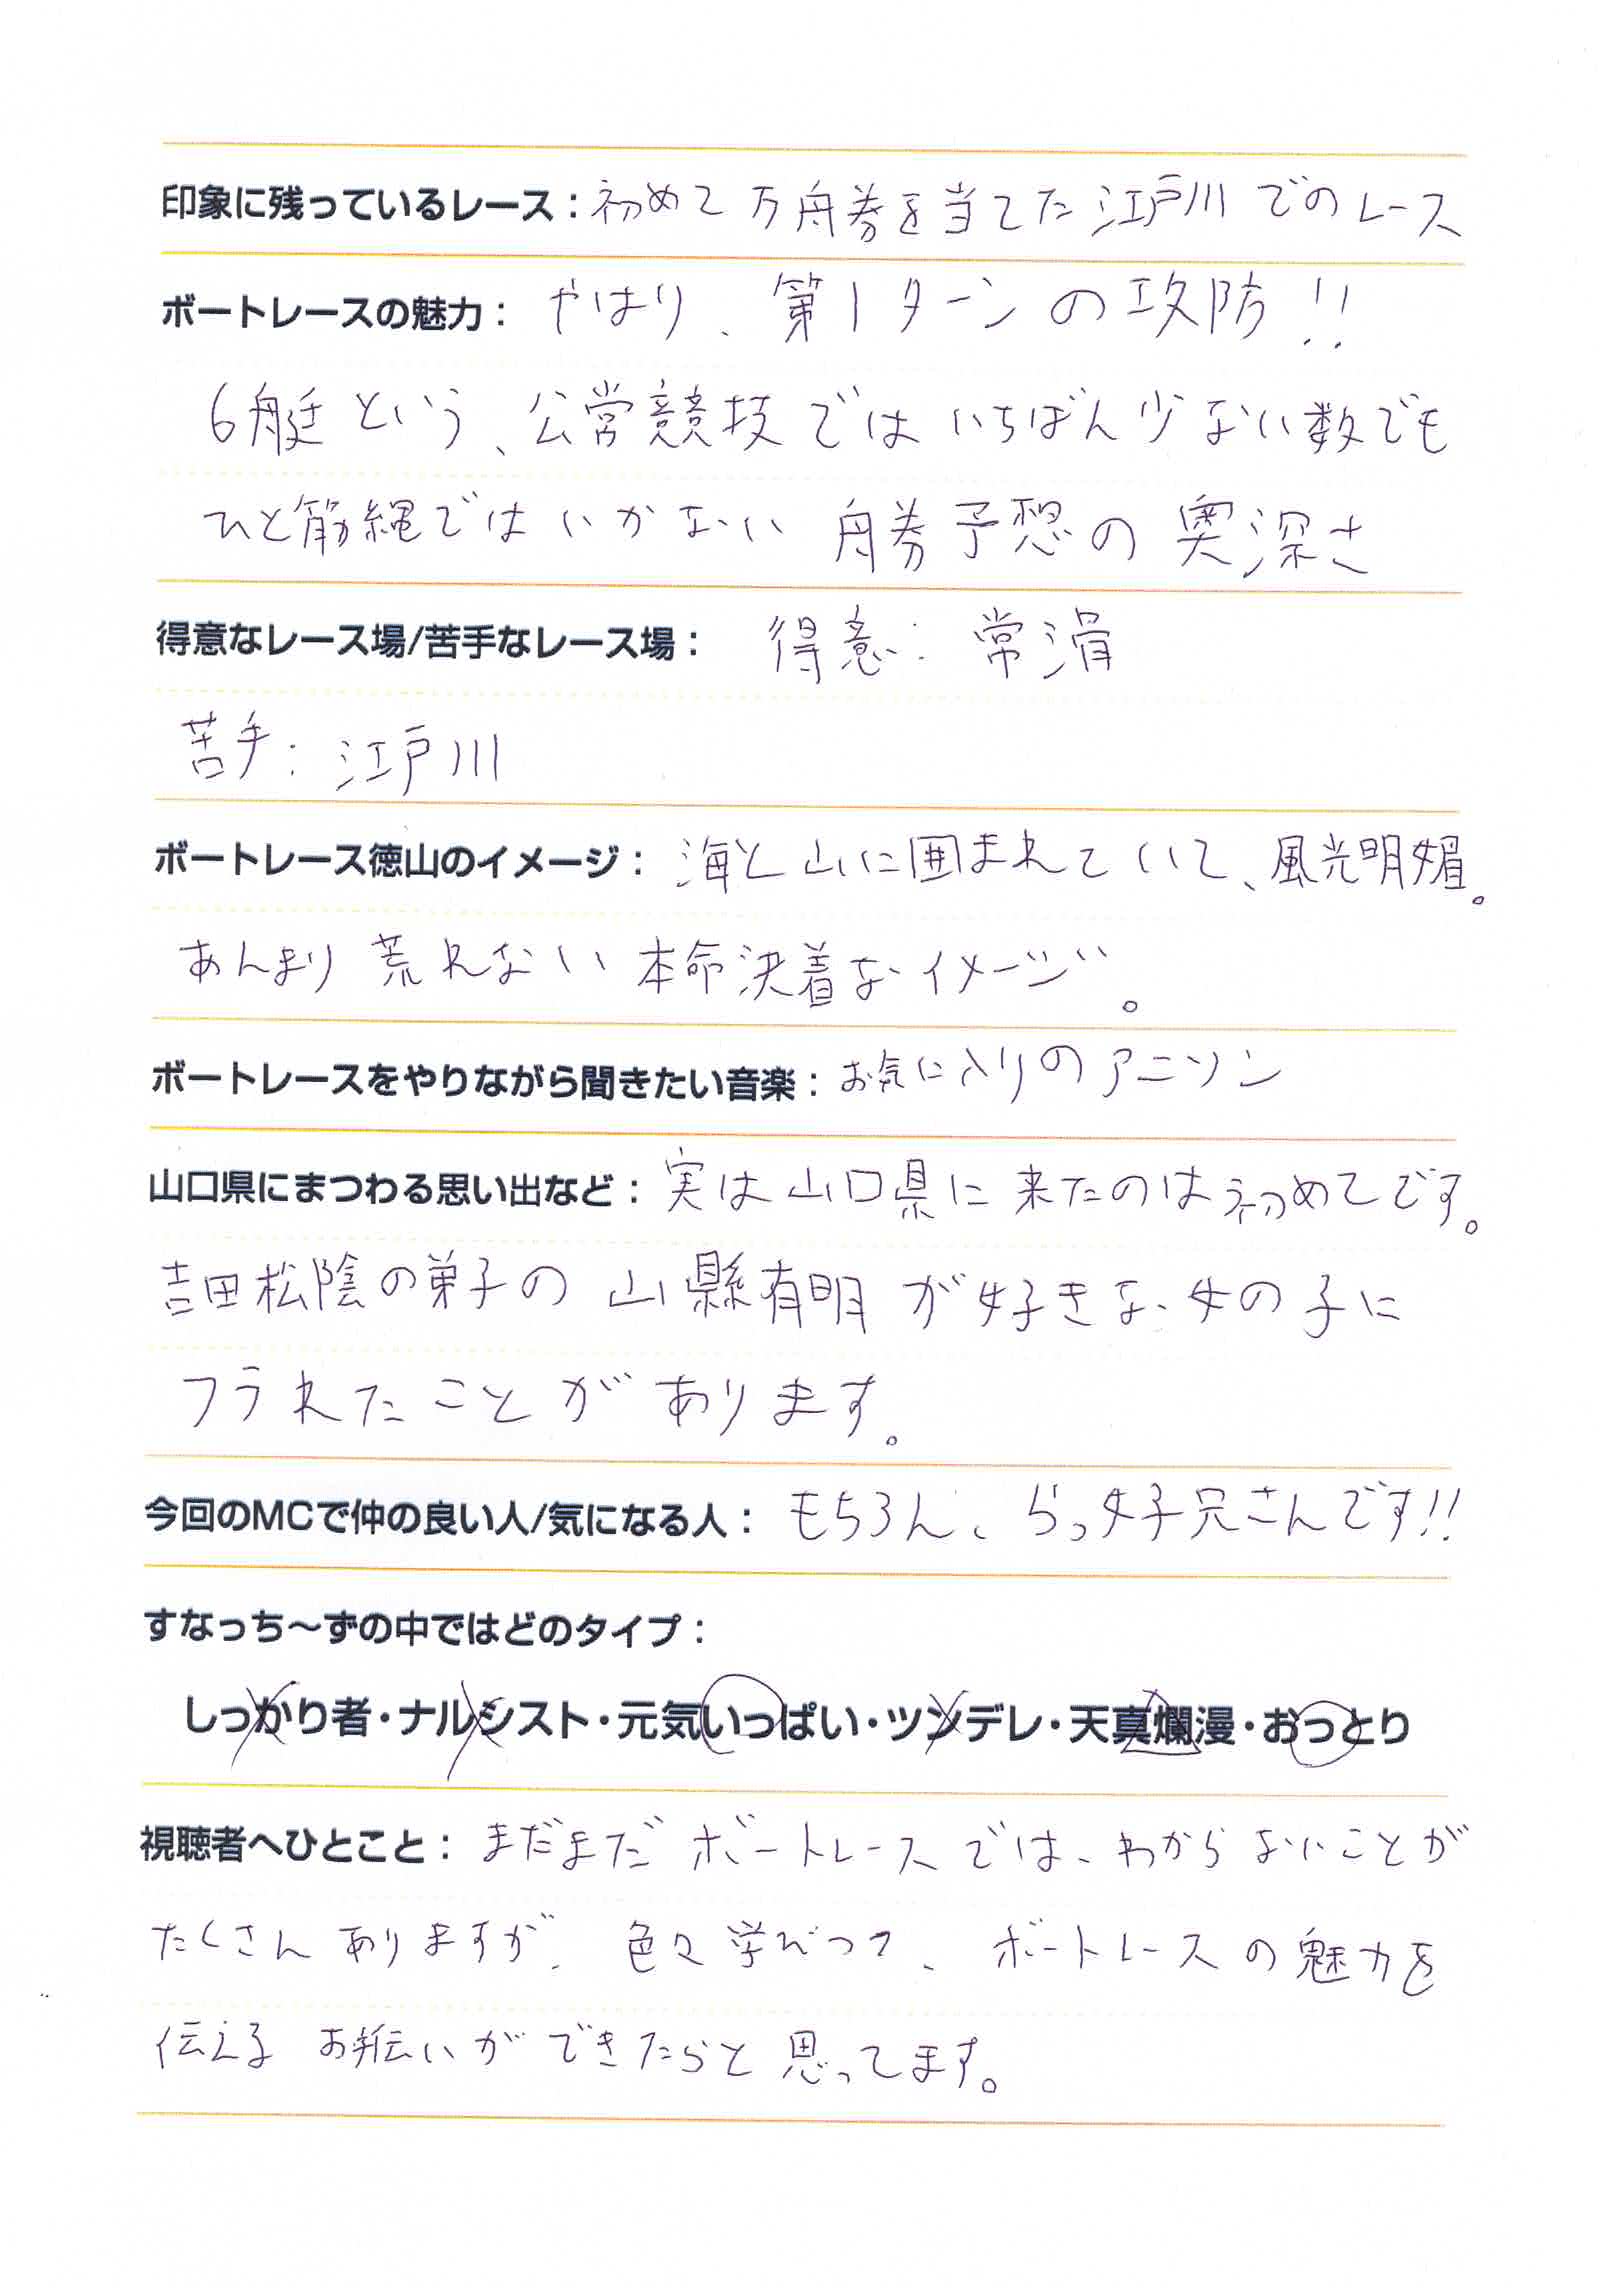 印象に残っているレース：初めて万舟券を当てた江戸川でのレース
ボートレースの魅力：やはり、第1ターンの攻防!!
6艇という、公営競技ではいちばん少ない数でも
ひと筋縄ではいかない 舟券予想の奥深さ
得意なレース場/苦手なレース場： 得意：常滑
苦手：江戸川
ボートレース徳山のイメージ：海と山に囲まれていて、風光明媚。
あんまり荒れない本命決着なイメージ。
ボートレースをやりながら聞きたい音楽：お気に入りのアニソン
山口県にまつわる思い出など：実は山口県に来たのは初めてです。
吉田松陰の弟子の山縣有明が好きな女の子に
フラれたことがあります。
今回のMCで仲の良い人/気になる人：もちろん、らっ好兄さんです!!
すなっち～ずの中ではどのタイプ：
しっかり者・ナルシスト・元気いっぱい・ツンデレ・天真爛漫・おっとり
視聴者へひとこと：まだまだボートレースでは、わからないことが
たくさんありますが、色々学びつつ、ボートレースの魅力を
伝えるお手伝いができたらと思ってます。